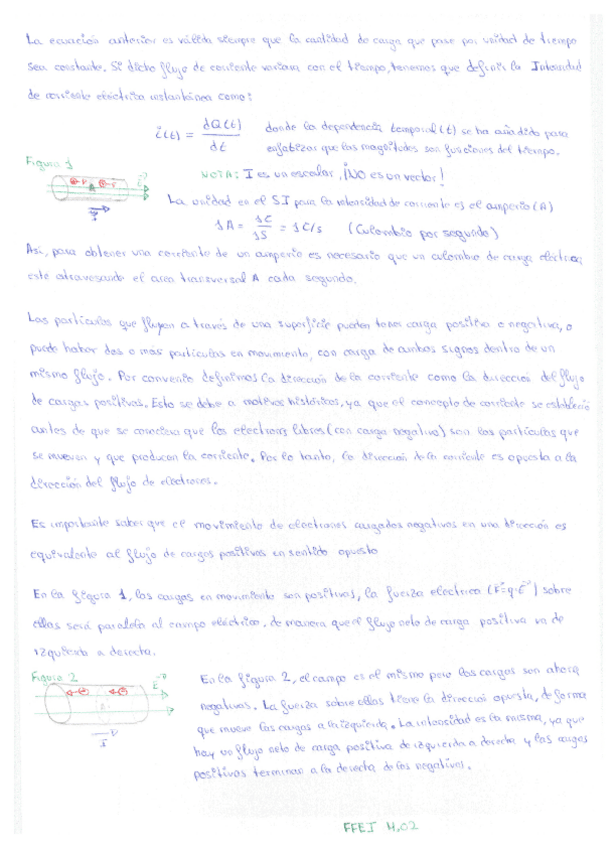 La ecuación anterior es válida siempre que la cantidad de carga que pase por unidad de tiempo
sea constante. Si dicho flujo de corriente variara con el tiempo, tenemos que definir la Intensidad
de corriente eléctrica instantánea como:
i(t) = dQ(t) / dt donde la dependencia temporal (t) se ha añadido para
enfatizar que las magnitudes son funciones del tiempo.
Figura 1
NOTA: I es un escalar, ¡NO es un vector!
La unidad en el SI para la intensidad de corriente es el amperio (A)
1A = 1C / 1S = 1 C/s (Culombio por segundo)
Así, para obtener una corriente de un amperio es necesario que un culombio de carga electrica
este atravesando el area transversal A cada segundo.
Las particulas que fluyen a través de una superficie pueden tener carga positiva o negativa, o
puede haber dos o mas particulas en movimiento, con carga de ambos signos dentro de un
mismo flujo. Por convenio definimos la dirección de la corriente como la dirección del flujo
de cargas positivas. Esto se debe a motivos históricos, ya que el concepto de corriente se estableció
antes de que se conociera que los electrons libres (con carga negativa) son las particulas que
se mueven y que producen la corriente. Por lo tanto, la dirección de la corriente es opuesta a la
dirección del flujo de electrones.
Es importante saber que el movimiento de electrones cargados negativos en una dirección es
equivalente al flujo de cargas positivas en sentido opuesto
En la figura 1, las cargas en movimiento son positivas, la fuerza electrica (F=q·E) sobre
ellas será paralela al campo eléctrico, de manera que el flujo neto de carga positiva va de
izquierda a derecha.
Figura 2
En la figura 2, el campo es el mismo pero las cargas son ahora
negativas. La fuerza sobre ellas tiene la direccion opuesta, de forma
que mueve las cargas a la izquierda. La intensidad es la misma, ya que
hay un flujo neto de carga positiva de izquierda a derecha y las cargas
positivas terminan a la derecha de las negativas.
FFEI 4.02